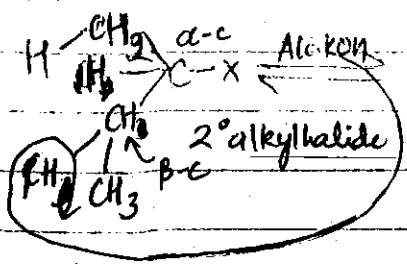 CH2 α-c
H C-X Alc·KOH
CH
2° alkylhalide
CH3 β-c